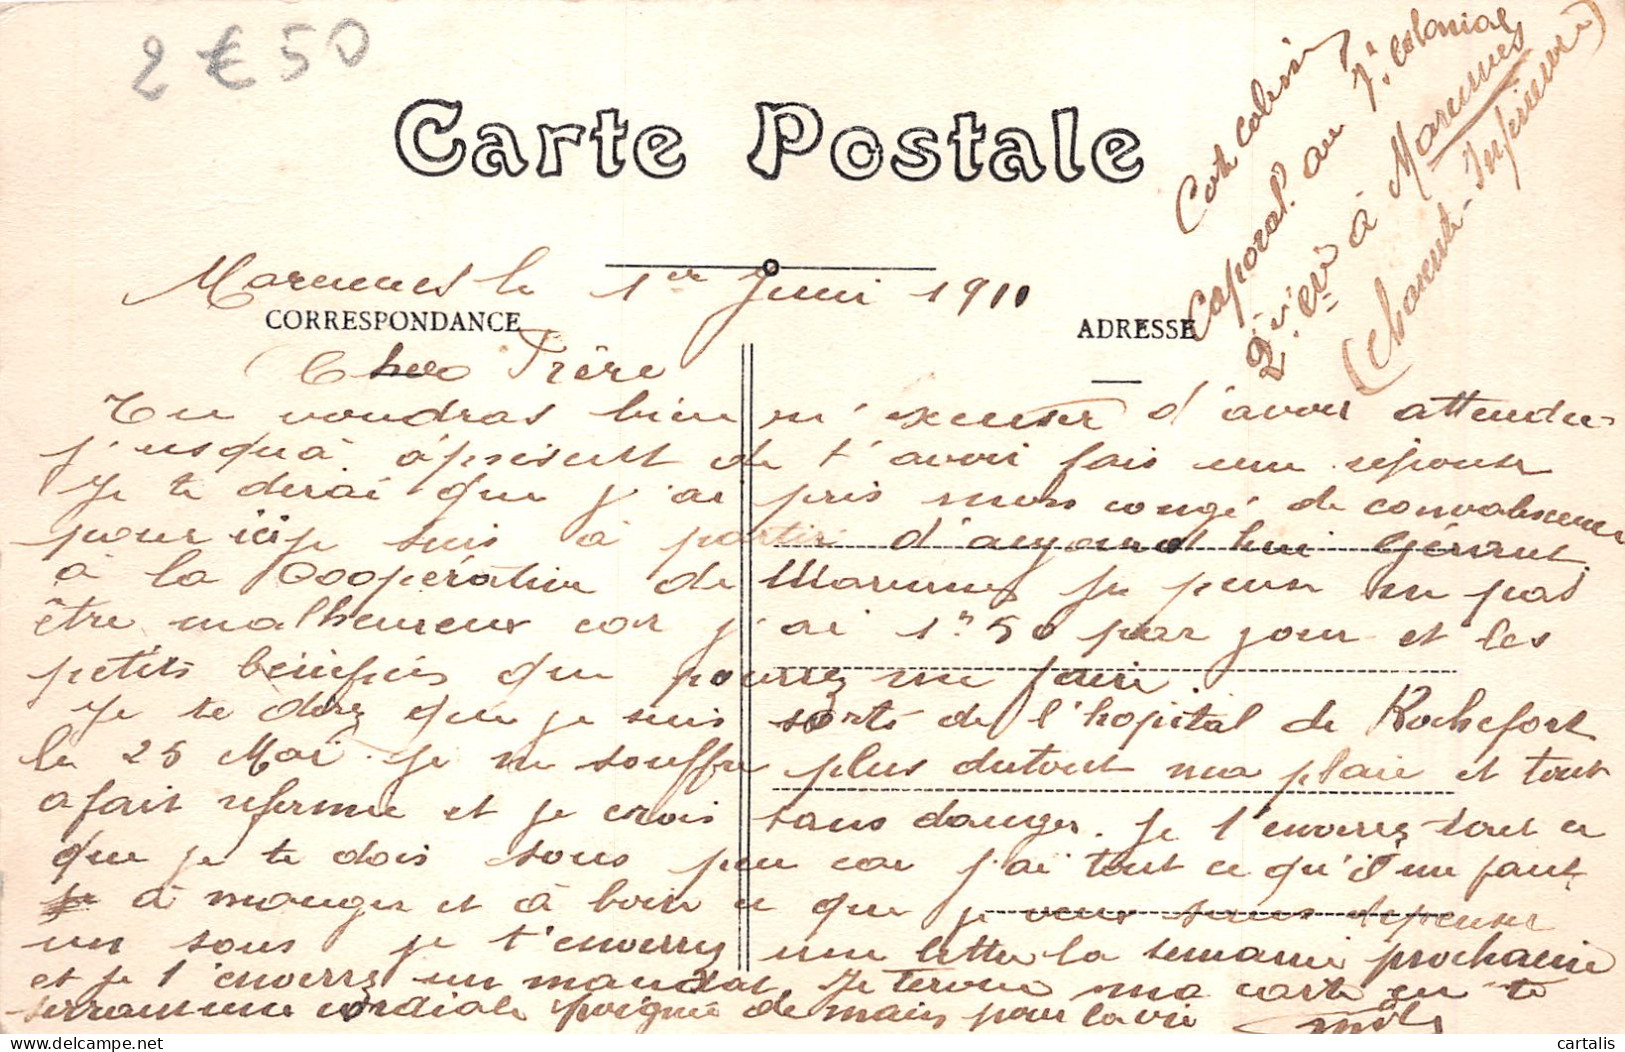 2 € 50
Carte Postale
Caporal au 7e Colonial
à Marennes
(Charente-Inférieure)
Marennes le 1er Juin 1911
CORRESPONDANCE
ADRESSE
Cher Frère
Tu voudras bien m'excuser d'avoir attendu
jusqu'à àprésent de t'avoir fais une réponse
Je te dirai que j'ai pris mon congé de convalescence
pour ici je suis à partir d'aujourd'hui Gérant
à la Coopérative de Marennes je peux ne pas
être malheureux car j'ai 1f 50 par jour et les
petits bénéfices que pourrez me faire
Je te direz que je suis sorti de l'hopital de Rochefort
le 25 Mai je ne souffre plus dutout ma plaie et tout
afait refermé et je crois sans danger. Je t'enverrez tout ce
que je te dois sous peu car j'ai tout ce qu'il me faut
à manger et à boire ce que je veux sans depenser
un sous je t'enverrez une lettre la semaine prochaine
et je t'enverrez un mandat. Je termine ma carte en te
serrant une cordiale poignée de mains pour la vie
cartalis